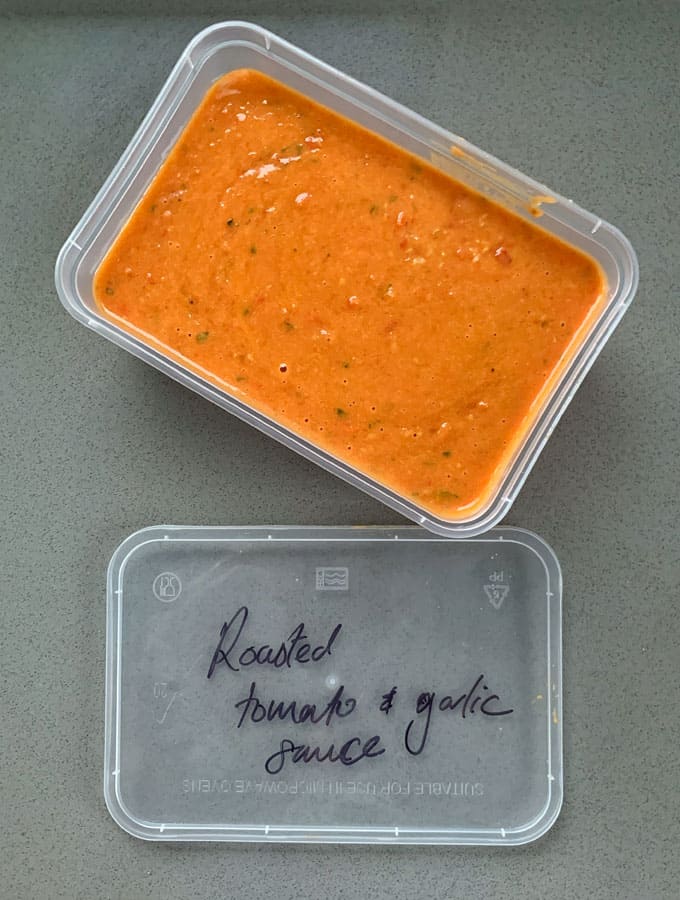 PP
5
Roasted
tomato & garlic
sauce
SUITABLE FOR USE IN MICROWAVE OVENS